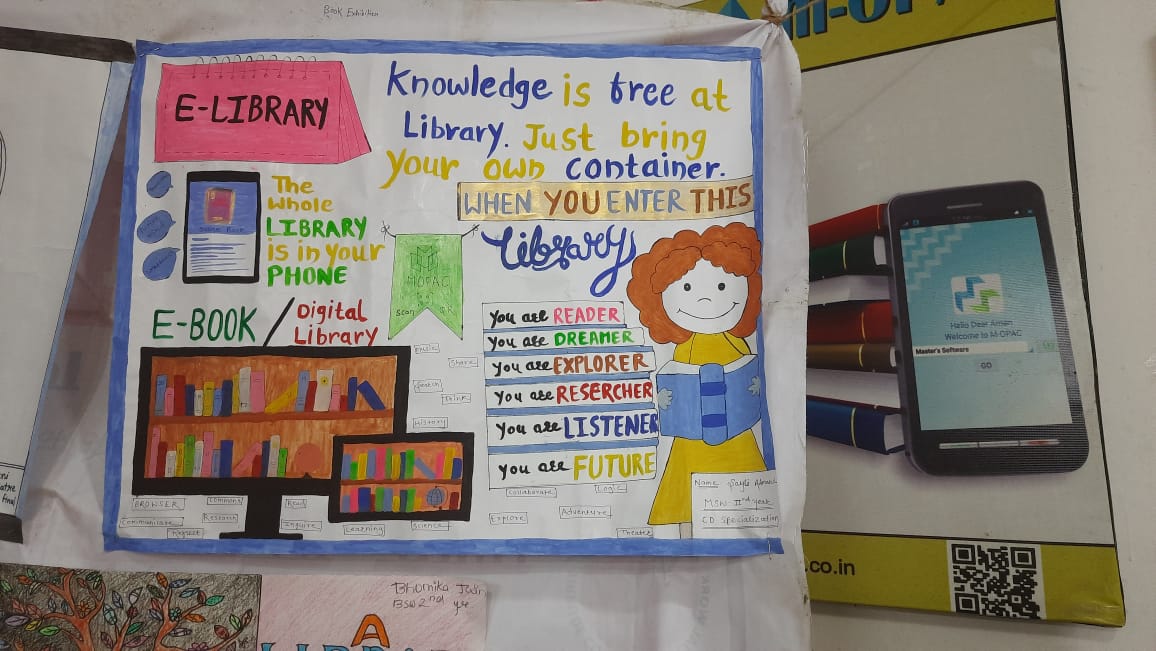 Book Exhibition
E-LIBRARY
Knowledge is free at
Library. Just bring
your own container.
WHEN YOU ENTER THIS
Library
The
whole
LIBRARY
is in your
PHONE
MOPAC
Scan QR
E-BOOK / Digital
Library
You are READER
You are DREAMER
You are EXPLORER
You are RESERCHER
You are LISTENER
You are FUTURE
Music
Share
Search
Think
History
Collaborate
Logic
Explore
Adventure
Theater
BROWSER
Commons
Read
Communicate
Research
Inquire
Learning
Science
Name
MSW IInd year
CD Specialization
Bhumika
BSW 2nd
A
Hello Dear Aman
Welcome to M-OPAC
Master's Software
GO
.co.in